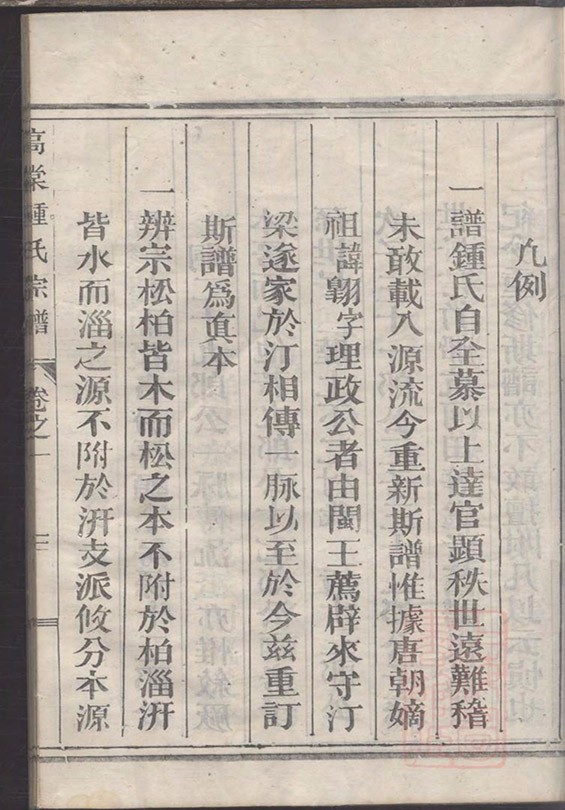 凡例
一譜鍾氏自全慕以上達官顯秩世遠難稽
未敢載入源流今重新斯譜惟據唐朝嫡
祖諱翺字理政公者由閩王薦辟來守汀
梁遂家於汀相傳一脉以至於今兹重訂
斯譜爲真本
一辨宗松柏皆木而松之本不附於柏淄汧
皆水而淄之源不附於汧支派攸分本源
高棠鍾氏宗譜 卷之一 二